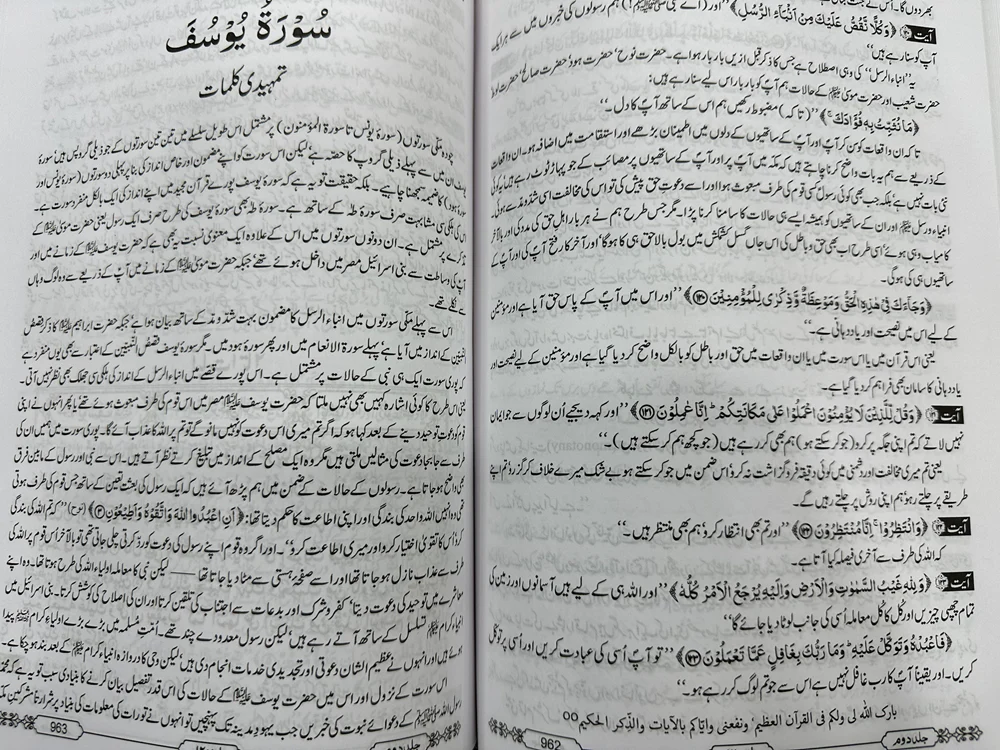 بھر دوں گا۔ اُس نے جنت
آیت ۱۲۰ ﴿وَكُلًّا نَّقُصُّ عَلَيْكَ مِنْ اَنْۢبَآءِ الرُّسُلِ﴾ ’’اور (اے نبی ﷺ!) ہم رسولوں کی خبروں میں سے ہر ایک
آپؐ کو سنا رہے ہیں‘‘
یہ ’’انباء الرسل‘‘ کی وہی اصطلاح ہے جس کا ذکر قبل ازیں بار بار ہوا ہے۔ حضرت نوح‘ حضرت ہود‘ حضرت صالح‘ حضرت لوط‘
حضرت شعیب اور حضرت موسیٰ ﷩ کے حالات ہم آپؐ کو بار بار اس لیے سنا رہے ہیں:
﴿مَا نُثَبِّتُ بِهٖ فُؤَادَكَ ۚ﴾ ’’(تاکہ) مضبوط رکھیں ہم اس کے ساتھ آپؐ کا دل۔‘‘
تاکہ ان واقعات کو سن کر آپؐ اور آپؐ کے ساتھیوں کے دلوں میں اطمینان بڑھے اور استقامت میں اضافہ ہو۔ ان واقعات
کے ذریعے سے ہم یہ بات واضح کرنا چاہتے ہیں کہ مکہ میں آپؐ پر اور آپؐ کے ساتھیوں پر مصائب کے جو پہاڑ ٹوٹ رہے ہیں یہ کوئی
نئی بات نہیں ہے بلکہ جب بھی کوئی رسولؑ کسی قوم کی طرف مبعوث ہوا اور اسے دعوتِ حق پیش کی تو اس کی مخالفت اسی شدّومد سے ہوئی۔
انبیاء ورسل ﷩ اور ان کے ساتھیوں کو ہمیشہ ایسے ہی حالات کا سامنا کرنا پڑا۔ مگر جس طرح ہم نے ہر بار اہلِ حق کی مدد کی اور بالآخر
کامیاب وہی ہوئے‘ اسی طرح اب بھی حق و باطل کی اس جاں گسل کشمکش میں بول بالا حق ہی کا ہو گا‘ اور آخر کار فتح آپؐ کی اور آپؐ کے
ساتھیوں ہی کی ہو گی۔
﴿وَجَآءَكَ فِيْ هٰذِهِ الْحَقُّ وَمَوْعِظَةٌ وَّذِكْرٰى لِلْمُؤْمِنِيْنَ ﴿۱۲۰﴾﴾ ’’اور اس میں آپؐ کے پاس حق آیا ہے اور مؤمنین
کے لیے اس میں نصیحت اور یاد دہانی ہے۔‘‘
یعنی اس قرآن میں یا اس سورت میں یا ان واقعات میں حق اور باطل کو بالکل واضح کر دیا گیا ہے اور مؤمنین کے لیے نصیحت اور
یاد دہانی کا سامان بھی فراہم کر دیا گیا ہے۔
آیت ۱۲۱ ﴿وَقُلْ لِّلَّذِيْنَ لَا يُؤْمِنُوْنَ اعْمَلُوْا عَلٰى مَكَانَتِكُمْ ۭ اِنَّا عٰمِلُوْنَ ﴿۱۲۱﴾﴾ ’’اور کہہ دیجیے اُن لوگوں سے جو ایمان
نہیں لاتے کہ تم اپنی جگہ پر کرو (جو کر سکتے ہو)‘ ہم بھی کر رہے ہیں (جو کچھ ہم کر سکتے ہیں)۔‘‘
یعنی تم میری مخالفت اور دشمنی میں کوئی دقیقہ فروگزاشت نہ کرو‘ اس ضمن میں جو کر سکتے ہو بے شک میرے خلاف کر گزرو‘ تم اپنے
طریقے پر چلتے رہو‘ ہم اپنی روش پر چلتے رہیں گے۔
آیت ۱۲۲ ﴿وَانْتَظِرُوْا ۚ اِنَّا مُنْتَظِرُوْنَ ﴿۱۲۲﴾﴾ ’’اور تم بھی انتظار کرو‘ ہم بھی منتظر ہیں۔‘‘
کہ اللہ کی طرف سے آخری فیصلہ کیا آتا ہے۔
آیت ۱۲۳ ﴿وَلِلّٰهِ غَيْبُ السَّمٰوٰتِ وَالْاَرْضِ وَاِلَيْهِ يُرْجَعُ الْاَمْرُ كُلُّهٗ﴾ ’’اور اللہ ہی کے لیے ہیں آسمانوں اور زمین کی
تمام چھپی چیزیں اور کل کا کل معاملہ اُسی کی جانب لوٹا دیا جائے گا‘‘
﴿فَاعْبُدْهُ وَتَوَكَّلْ عَلَيْهِ ۭ وَمَا رَبُّكَ بِغَافِلٍ عَمَّا تَعْمَلُوْنَ ﴿۱۲۳﴾﴾ ’’تو آپؐ اُسی کی عبادت کریں اور اُسی پر توکّل
کریں۔ اور یقیناً آپؐ کا رب غافل نہیں ہے اس سے جو تم لوگ کر رہے ہو۔‘‘
بارك الله لى ولكم فى القرآن العظيم‘ ونفعنى واياكم بالآيات والذِّكر الحكيم ○○
جلد دوم
962
سُوْرَۃُ یُوْسُفَ
تمہیدی کلمات
چودہ مکّی سورتوں (سورۂ یونس تا سورۃ المؤمنون) پر مشتمل اس طویل سلسلے میں تین تین سورتوں کے جو ذیلی گروپس ہیں‘ سورۂ
یوسف ان میں سے پہلے ذیلی گروپ کا حصّہ ہے‘ لیکن اس سورت کو اپنے مضمون اور خاص انداز کی بنا پر پہلی دو سورتوں (سورۂ یونس اور
سورۂ ہود) کا ضمیمہ سمجھنا چاہیے۔ بلکہ حقیقت تو یہ ہے کہ سورۂ یوسف پورے قرآن مجید میں اپنے انداز کی ایک بالکل منفرد سورت ہے۔
اس کی ہلکی سی مشابہت صرف سورۂ طٰہٰ کے ساتھ ہے۔ سورۂ طٰہٰ بھی سورۂ یوسف کی طرح صرف ایک رسول یعنی حضرت موسیٰؑ کے
تذکرے پر مشتمل ہے۔ ان دونوں سورتوں میں اس کے علاوہ ایک معنوی نسبت یہ بھی ہے کہ حضرت یوسف ﷤ کے زمانے میں اور
آپؑ کی وساطت سے بنی اسرائیل مصر میں داخل ہوئے تھے‘ جبکہ حضرت موسیٰ ﷤ کے زمانے میں آپؑ کے ذریعے سے وہ لوگ وہاں
سے نکلے تھے۔
اس سے پہلے مکّی سورتوں میں انباء الرسل کا مضمون بہت شدّومد کے ساتھ بیان ہوا ہے‘ جبکہ حضرت ابراہیم ﷤ کا ذکر قصص
النّبیین کے انداز میں آیا ہے‘ پہلے سورۃ الانعام میں اور پھر سورۂ ہود میں۔ مگر سورۂ یوسف قصص النّبیین کے اعتبار سے بھی یوں منفرد ہے
کہ پوری سورت ایک ہی نبی کے حالات پر مشتمل ہے۔ اس پورے قصے میں انباء الرسل کے انداز کی ہلکی سی جھلک بھی نظر نہیں آتی۔
یعنی اس طرح کا کوئی اشارہ کہیں بھی نہیں ملتا کہ حضرت یوسف ﷤ مصر میں اس قوم کی طرف مبعوث ہوئے تھے‘ یا پھر انہوں نے اپنی
قوم کو دعوتِ توحید دینے کے بعد کہا ہو کہ اگر تم میری اس دعوت کو نہیں مانو گے تو تم پر اللہ کا عذاب آئے گا۔ پوری سورت میں ہمیں ان کی
طرف سے جا بجا دعوت کی مثالیں ملتی ہیں مگر وہ ایک مصلح کے انداز میں تبلیغ کرتے نظر آتے ہیں۔ اس سے نبی اور رسول کے مابین فرق
بھی واضح ہو جاتا ہے۔ رسولوں کے حالات کے ضمن میں ہم پڑھ آئے ہیں کہ ایک رسول کی بعثت تعین کے ساتھ جس قوم کی طرف ہوتی
تھی وہ انہیں اللہ واحد کی بندگی اور اپنی اطاعت کا حکم دیتا تھا: ﴿اَنِ اعْبُدُوا اللّٰهَ وَاتَّقُوْهُ وَاَطِيْعُوْنِ ﴿۳﴾﴾ (نوح) ’’کہ تم اللہ کی بندگی
کرو‘ اُس کا تقویٰ اختیار کرو اور میری اطاعت کرو‘‘۔ اور اگر وہ قوم اپنے رسول کی دعوت کو رد کرتی چلی جاتی تھی تو بالآخر اس قوم پر اللہ کی
طرف سے عذاب نازل ہو جاتا تھا اور اسے صفحۂ ہستی سے مٹا دیا جاتا تھا —— لیکن نبی کا معاملہ اولیاء اللہ کی طرح ہوتا تھا۔ وہ اپنے
معاشرے میں توحید کی دعوت دیتا‘ کفر و شرک اور بدعات سے اجتناب کی تلقین کرتا اور ان کی اصلاح کی کوشش کرتا۔ بنی اسرائیل میں
انبیاء کرام ﷩ تسلسل کے ساتھ آتے رہے ہیں‘ لیکن رسول معدودے چند تھے۔ اُمت مُسلمہ میں بڑے بڑے اولیاء کرامؒ پیدا
ہوئے ہیں اور انہوں نے عظیم الشان دعوتی اور تجدیدی خدمات انجام دی ہیں‘ لیکن وحی کا دروازہ انبیاء کرام ﷩ کے بعد بند ہو چکا ہے۔
اس سورت کے نزول اور اس میں حضرت یوسف ﷤ کے حالات کی اس قدر تفصیل بیان کرنے کا بنیادی سبب تو یہ ہے کہ محمد
رسول اللہ ﷺ کے دعوائے نبوت کی خبریں جب یہودِ مدینہ تک پہنچیں تو انہوں نے تورات کی معلومات کی بنیاد پر شرارتاً مشرکینِ مکہ
جلد دوم
963